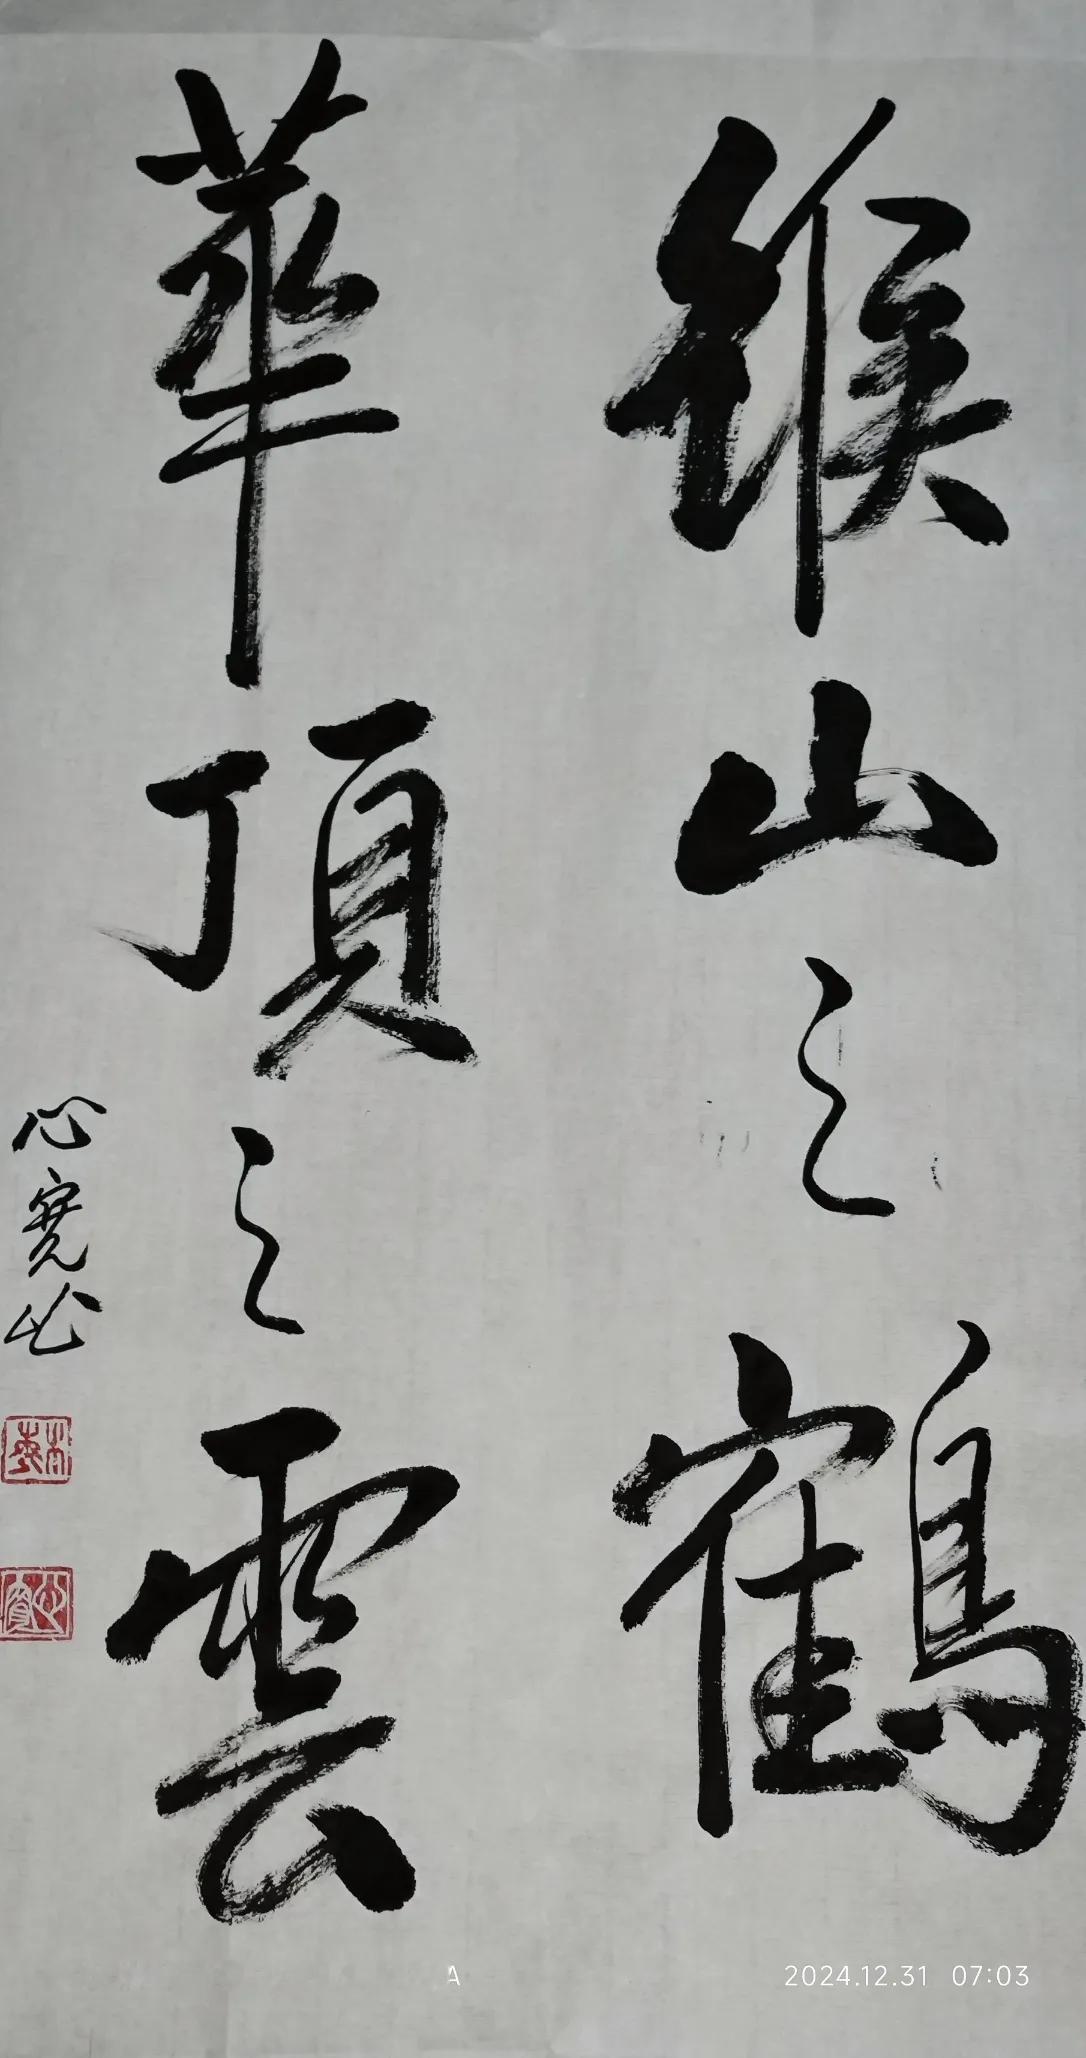 緱山之鶴
華頂之雲
心寬
2024.12.31 07:03